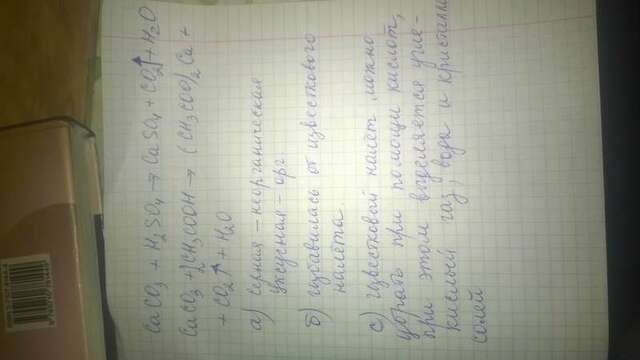 CaCO3 + H2SO4 → CaSO4 + CO2↑ + H2O
CaCO3 + 2CH3COOH → (CH3COO)2Ca +
+ CO2↑ + H2O
а) Серная – неорганическая
Уксусная – орг.
б) избавилась от известкового
налёта.
с) известковый налёт можно
убрать при помощи кислот,
при этом выделяется угле-
кислый газ, вода и кристаллы
солей